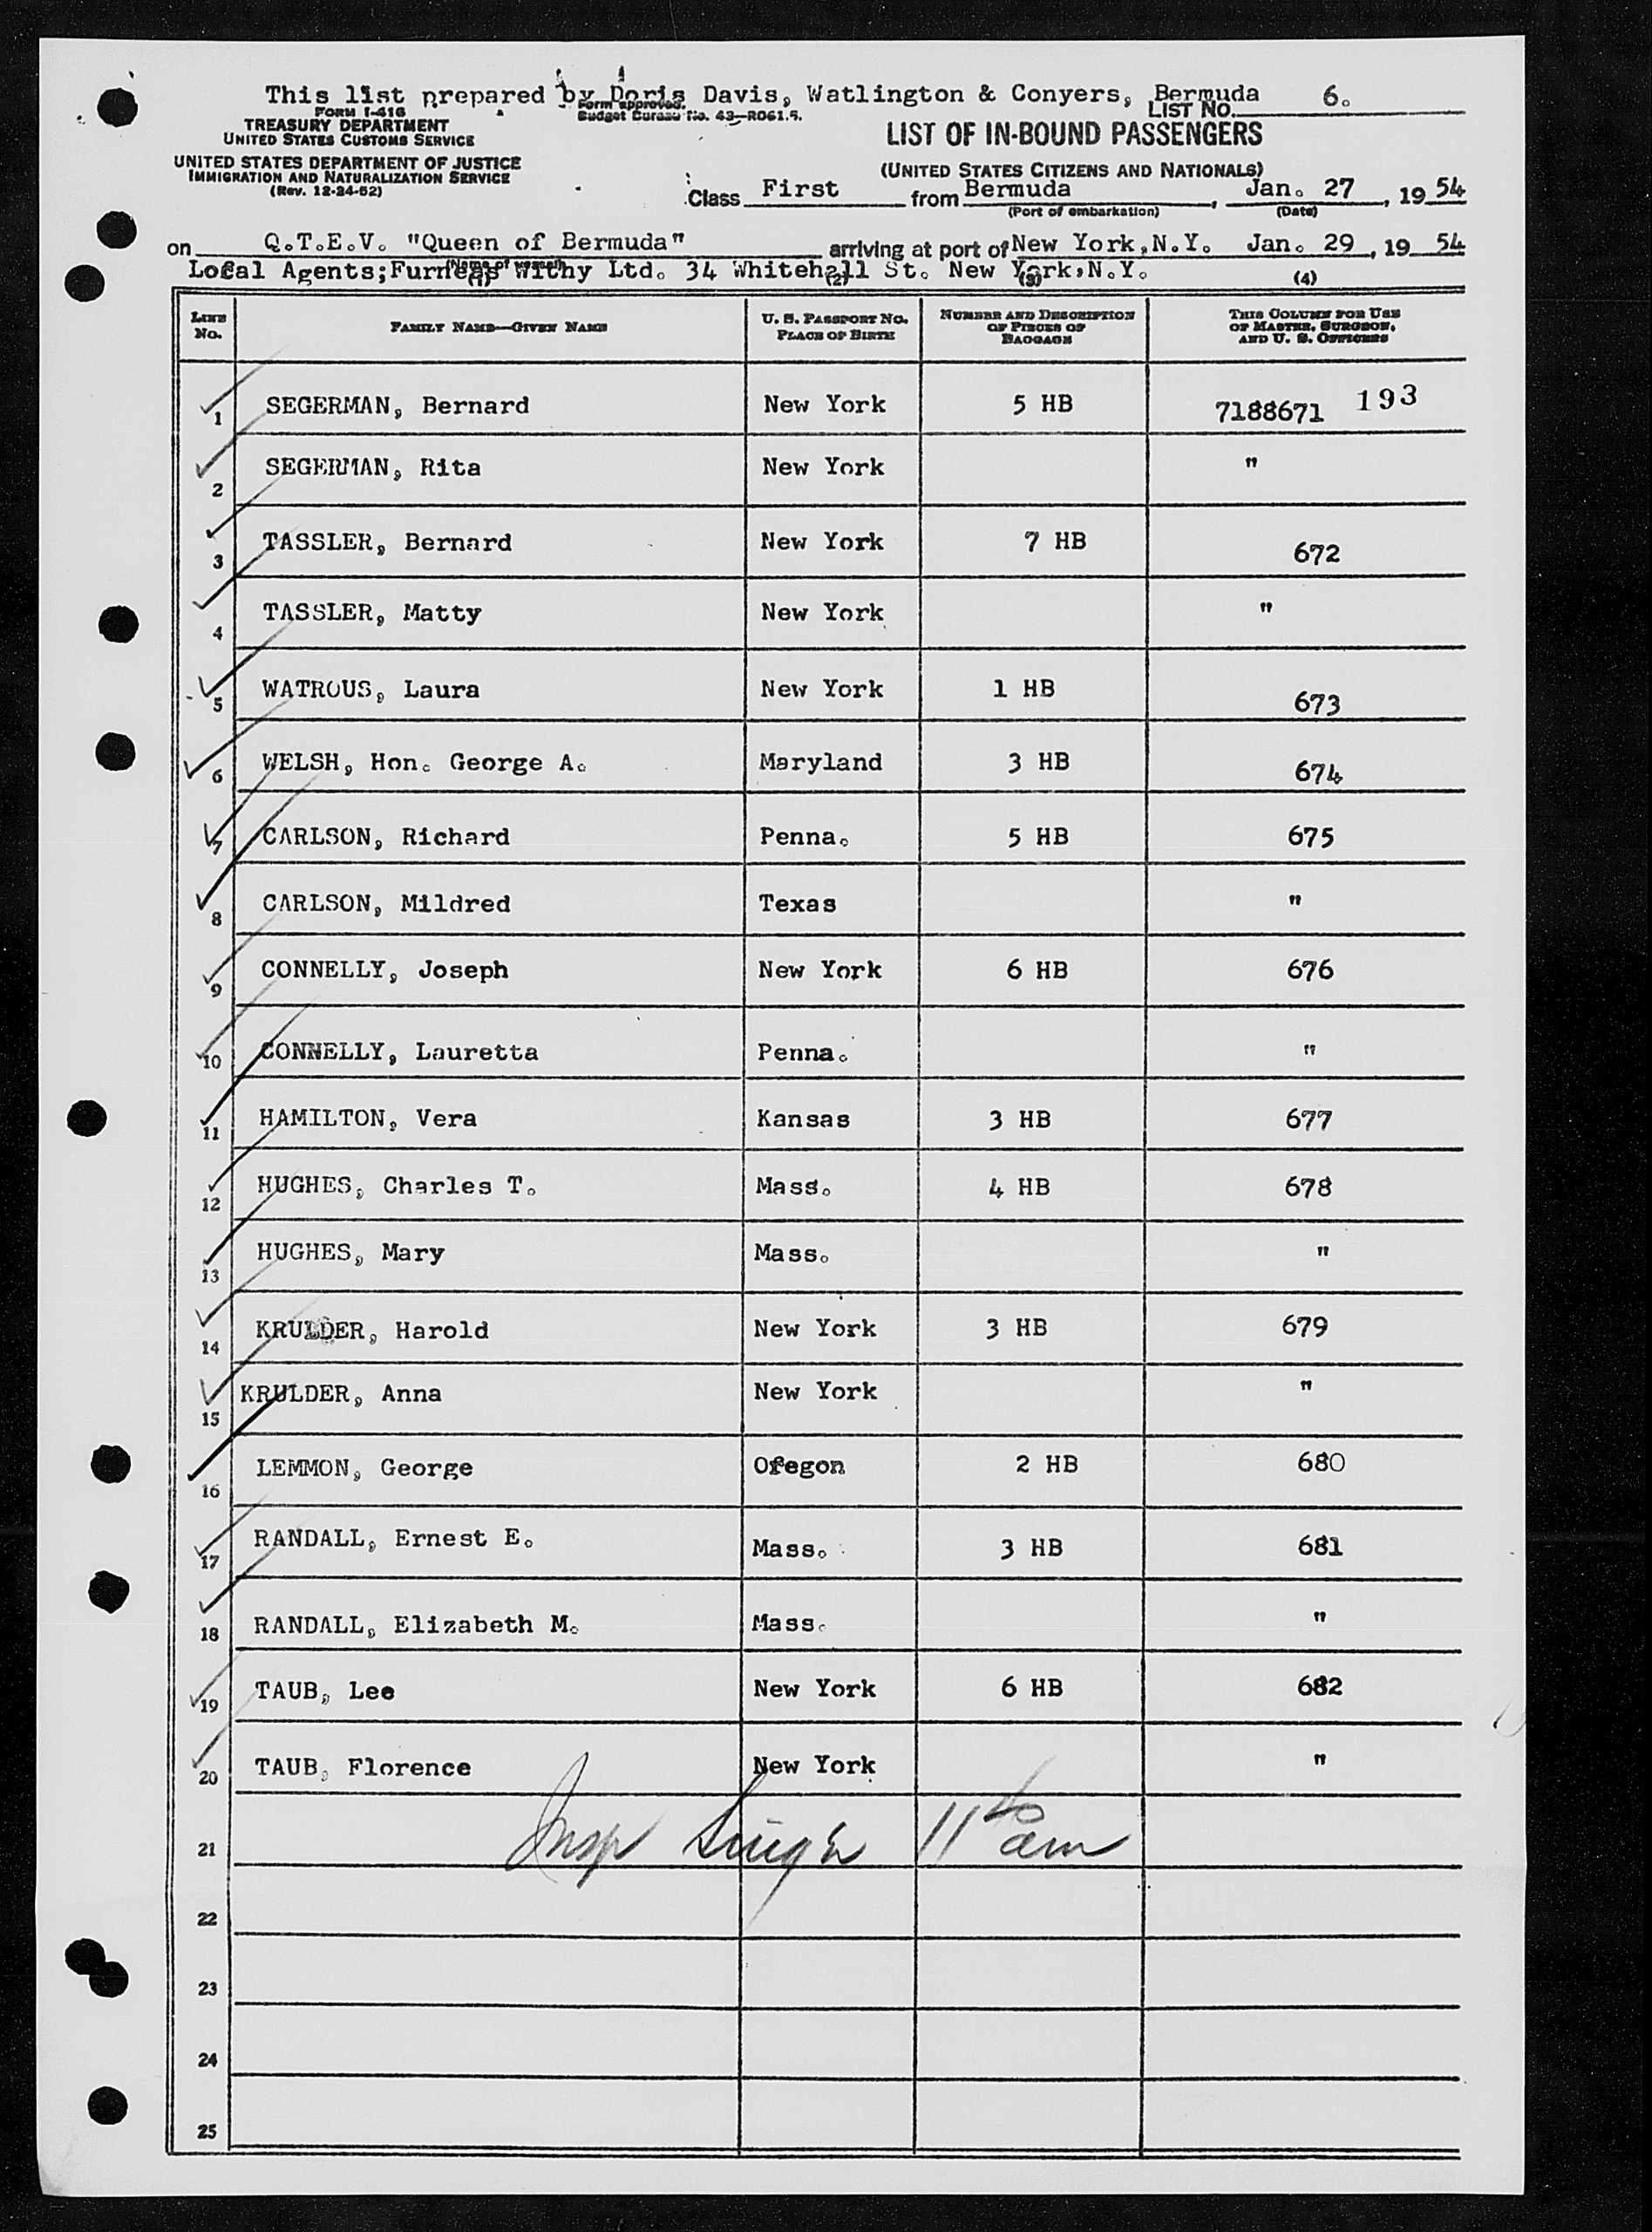 This list prepared by Doris Davis, Watlington & Conyers, Bermuda
LIST NO. 6.
FORM I-416
TREASURY DEPARTMENT
UNITED STATES CUSTOMS SERVICE
UNITED STATES DEPARTMENT OF JUSTICE
IMMIGRATION AND NATURALIZATION SERVICE
(Rev. 12-24-52)
Form approved.
Budget Bureau No. 43—R061.5.
LIST OF IN-BOUND PASSENGERS
(UNITED STATES CITIZENS AND NATIONALS)
Class First from Bermuda, Jan. 27, 19 54
(Port of embarkation) (Date)
on Q.T.E.V. "Queen of Bermuda" arriving at port of New York, N.Y. Jan. 29, 19 54
(Name of vessel)
Local Agents;Furness Withy Ltd. 34 Whitehall St. New York,N.Y.
(1) (2) (3) (4)
LINE No. FAMILY NAME—GIVEN NAME U. S. PASSPORT NO. PLACE OF BIRTH NUMBER AND DESCRIPTION OF PIECES OF BAGGAGE THIS COLUMN FOR USE OF MASTER, SURGEON, AND U. S. OFFICERS
1 SEGERMAN, Bernard New York 5 HB 7188671 193
2 SEGERMAN, Rita New York "
3 TASSLER, Bernard New York 7 HB 672
4 TASSLER, Matty New York "
5 WATROUS, Laura New York 1 HB 673
6 WELSH, Hon. George A. Maryland 3 HB 674
7 CARLSON, Richard Penna. 5 HB 675
8 CARLSON, Mildred Texas "
9 CONNELLY, Joseph New York 6 HB 676
10 CONNELLY, Lauretta Penna. "
11 HAMILTON, Vera Kansas 3 HB 677
12 HUGHES, Charles T. Mass. 4 HB 678
13 HUGHES, Mary Mass. "
14 KRULDER, Harold New York 3 HB 679
15 KRULDER, Anna New York "
16 LEMMON, George Oregon 2 HB 680
17 RANDALL, Ernest E. Mass. 3 HB 681
18 RANDALL, Elizabeth M. Mass. "
19 TAUB, Lee New York 6 HB 682
20 TAUB, Florence New York "
21 Insp 11 am
22
23
24
25